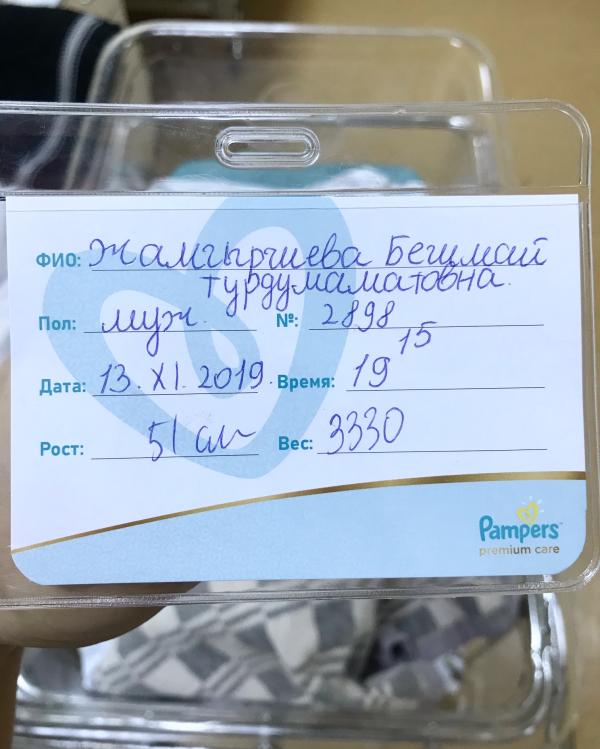 ФИО: Жамгырчиева Бегимай
турдумаматовна.
Пол: муж. №: 2898
Дата: 13. XI. 2019. Время: 19 15
Рост: 51 см Вес: 3330
Pampers
premium care